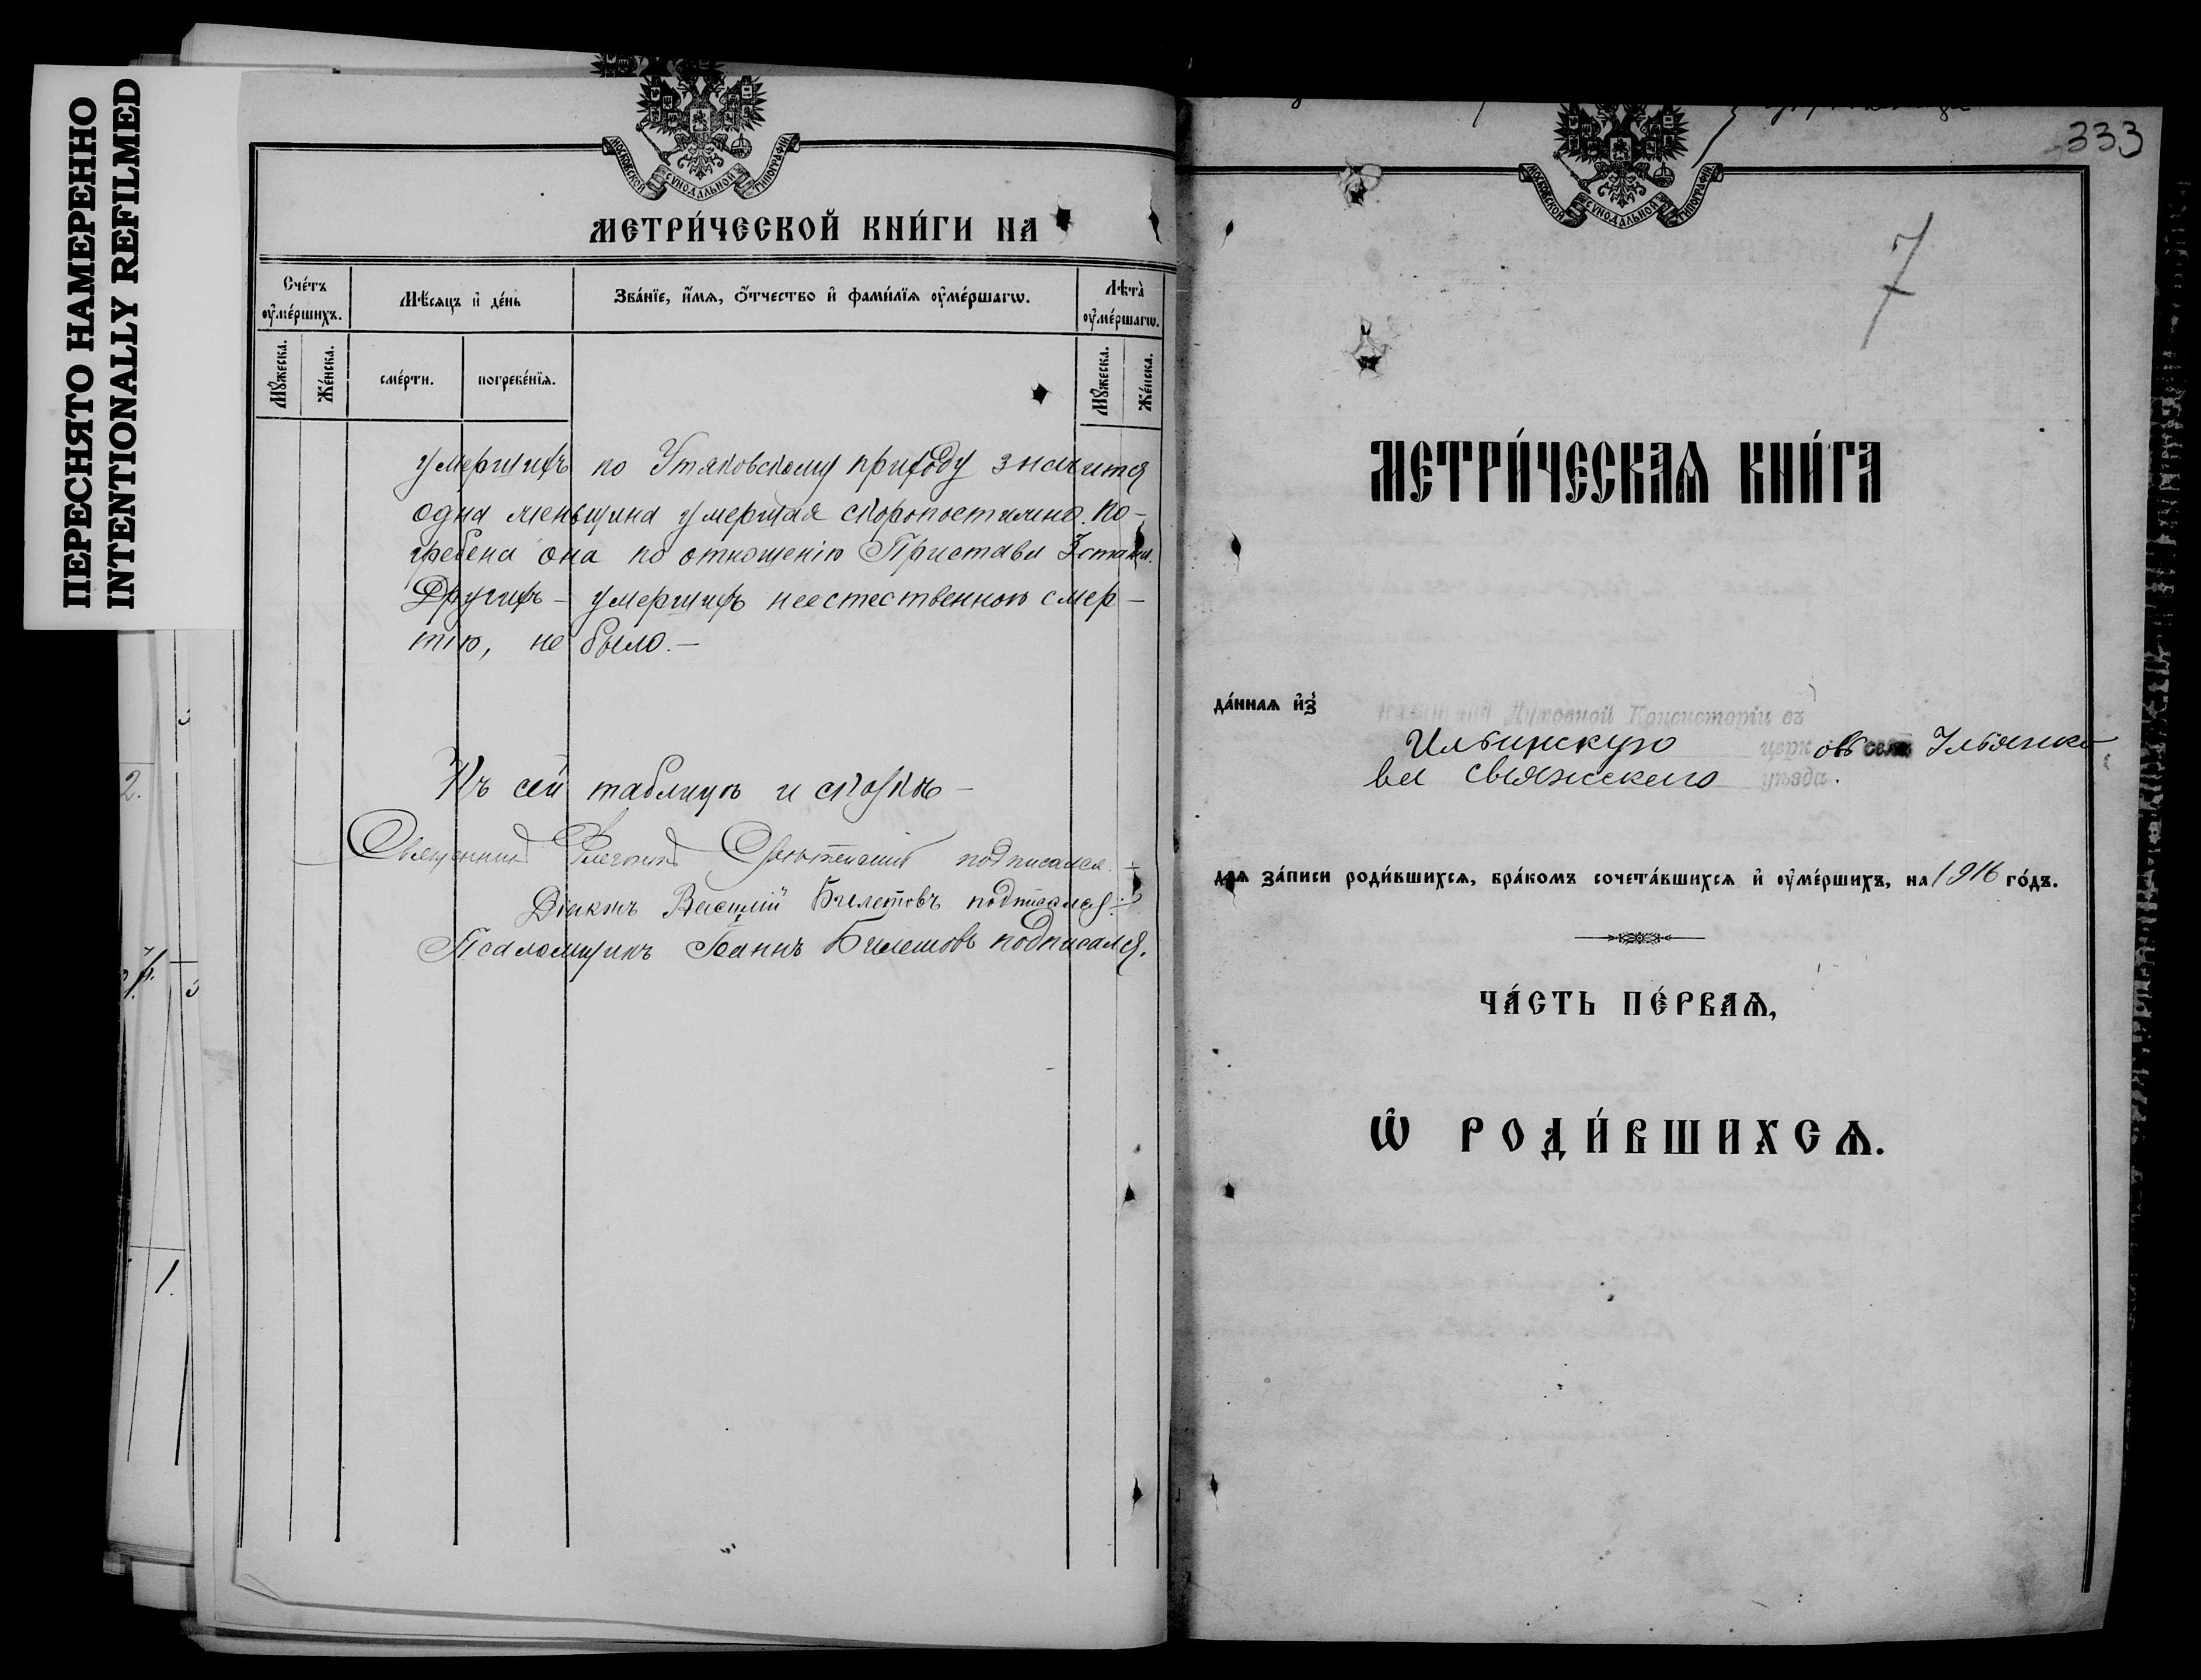 ПЕРЕСНЯТО НАМЕРЕННО
INTENTIONALLY REFILMED
МОСКОВСКОЙ СѴНОДАЛЬНОЙ ТИПОГРАФІИ
МЕТРИ́ЧЕСКОЙ КНИ́ГИ НА
Сче́тъ ᲂу҆ме́ршихъ.
Мѣ́сяцъ и҆ де́нь
Зва́нїе, и҆́мѧ, ѻ҆́тчество и҆ фами́лїѧ ᲂу҆ме́ршагѡ.
Лѣта̀ ᲂу҆ме́ршагѡ.
Мꙋ́жеска.
Же́нска.
сме́рти.
погребе́нїѧ.
Мꙋ́жеска.
Же́нска.
умершихъ по Утяковскому приходу значится
одна женщина умершая скоропостижно. По-
гребена она по отношенію Пристава 3 стана.
Другихъ – умершихъ неестественною смер-
тію, не было. –
Къ сей таблицѣ и
Священникъ подписался.
Діаконъ Василій Билетовъ подписался.
Псаломщикъ Іоаннъ Билетовъ подписался.
2.
3
1.
333
МОСКОВСКОЙ СѴНОДАЛЬНОЙ ТИПОГРАФІИ
7
МЕТРИ́ЧЕСКАѦ КНИ́ГА
да́ннаѧ и҆з̾ Духовной Консисторіи въ
Ильинскую церковь села Ульянко
ва Свіяжскаго уѣзда.
для за́писи роди́вшихся, бра́комъ сочета́вшихся и҆ ᲂу҆ме́ршихъ, на 1916 го́дъ.
ЧА́СТЬ ПЕ́РВАѦ,
Ѡ҆ РОДИ́ВШИХСѦ.